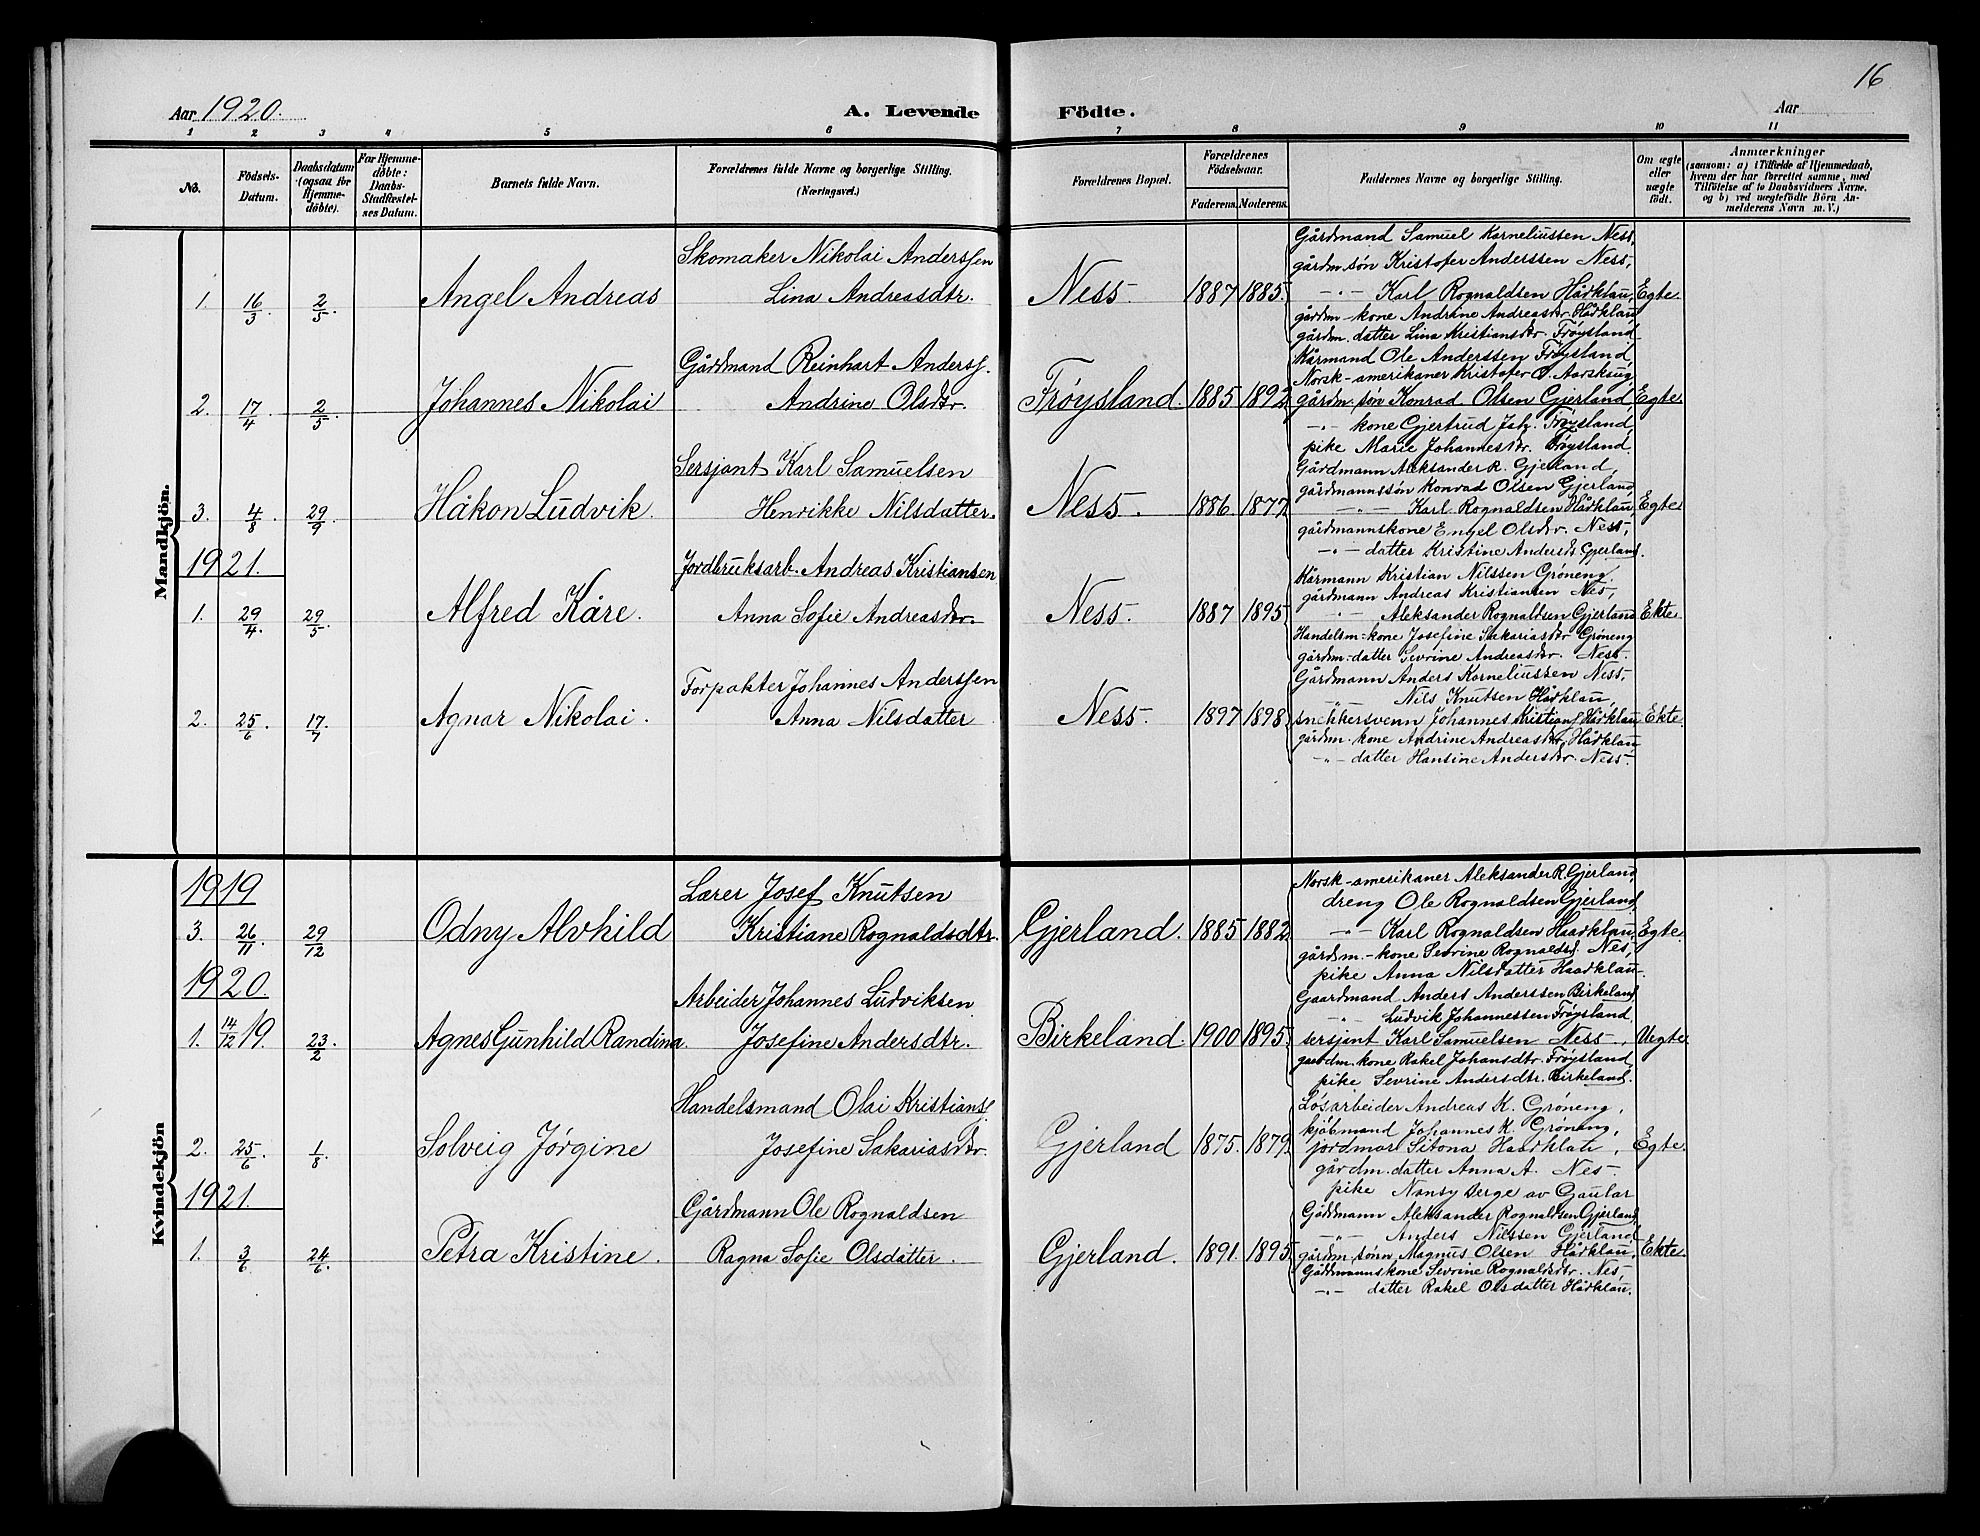 16
Aar 1920. A. Levende Födte. Aar
1 2 3 4 5 6 7 8 9 10 11
No. Födsels-Datum. Daabsdatum (ogsaa for Hjemmedöbte). For Hjemmedöbte: Daabs-Stadfæstelses Datum. Barnets fulde Navn. Forældrenes fulde Navne og borgerlige Stilling. (Næringsvei.) Forældrenes Bopæl. Forældrenes Födselsaar. Faderens. Moderens. Faddernes Navne og borgerlige Stilling. Om ægte eller uægte födt. Anmærkninger (saasom: a) i Tilfælde af Hjemmedaab, hvem der har forrettet samme, med Tilföielse af to Daabsvidners Navne, og b) ved uægtefödte Börn Anmelderens Navn m. V.)
Mandkjön.
1. 16/3 2/5. Angel Andreas
Skomaker Nikolai Anderssen
Lina Andreasdtr.
Ness. 1887 1885.
Gårdmand Samuel Korneliussen Ness,
gårdm. søn Kristofer Anderssen Ness,
-"- Karl Rognaldsen Hådklau, Egte.
gårdm.-kone Andrine Andreasdtr Hådklau
gårdm. datter Lina Kristiansdtr Frøysland
2. 17/4 2/5 Johannes Nikolai
Gårdmand Reinhart Anderss.
Andrine Olsdtr.
Frøysland. 1885 1892
Kårmand Ole Anderssen Frøysland,
Norsk-amerikaner Kristofer O.
gårdm. søn Konrad Olsen Gjerland, Egte.
-"- kone Gjertrud Frøysland,
pike Marie Johannesdtr. Frøysland.
3. 4/8 29/9. Håkon Ludvik.
Sersjant Karl Samuelsen
Henrikke Nilsdatter.
Ness. 1886. 1877.
Gårdmann Aleksander R. Gjerland,
gårdmannssøn Konrad Olsen Gjerland,
-"- Karl Rognaldsen Hådklau Egte
gårdmannskone Engel Olsdtr. Ness,
-"- datter Kristine Andersd. Gjerland.
1921.
1. 29/4. 29/5. Alfred Kåre.
Jordbruksarb. Andreas Kristiansen
Anna Sofie Andreasdtr.
Ness. 1887 1895
Kårmann Kristian Nilssen Grøneng.
gårdmann Andreas Kristiansen Nes,
-"- Aleksander Rognaldsen Gjerland Ekte
Handelsm.-kone Josefine Sakariasdtr Grøneng
gårdm.-datter Sevrine Andreasdtr. Ness.
2. 25/6. 17/7. Agnar Nikolai.
Forpakter Johannes Anderssen
Anna Nilsdatter
Ness. 1897 1898
Gårdmann Anders Korneliussen Ness,
-"- Nils Knutsen Hådklau,
snekkersvenn Johannes Kristians Hådklau Ekte.
gårdm. kone Andrine Andreasdtr, Hådklau
-"- datter Hansine Andersdtr. Ness.
Kvindekjön
1919
3. 26/11. 29/12 Odny Alvhild
Lærer Josef Knutsen
Kristiane Rognaldsdtr.
Gjerland. 1885 1882
Norsk-amerikaner Aleksander R. Gjerland,
dreng Ole Rognaldsen Gjerland,
-"- Karl Rognaldsen Haadklau, Egte.
gårdm.-kone Sevrine Rognaldsd. Nes,
pike Anna Nilsdatter Haadklau.
1920.
1. 14/12 19. 23/2. Agnes Gunhild Randina.
Arbeider Johannes Ludviksen
Josefine Andersdtr.
Birkeland. 1900 1895.
Gaardmand Anders Anderssen Birkeland
-"- Ludvik Johannessen Frøysland.
sersjant Karl Samuelsen Ness, Uegte
gaardm. kone Rakel Johansdtr. Frøysland,
pike Sevrine Andersdtr. Birkeland.
2. 25/6. 1/8 Solveig Jørgine
Handelsmand Olai Kristians.
Josefine Sakariasdtr.
Gjerland 1875. 1879.
Løsarbeider Andreas K. Grøneng,
kjøbmand Johannes K. Grøneng,
jordmor Sitona Haadklau, Egte.
gårdm. datter Anna A. Nes.
pike Nansy Berge av Gaular
1921.
1. 3/6 24/6. Petra Kristine.
Gårdmann Ole Rognaldsen
Ragna Sofie Olsdatter.
Gjerland. 1891. 1895.
Gårdmann Aleksander Rognaldsen Gjerland,
-"- Anders Nilssen Gjerland
gårdm.-sønn Magnus Olsen Hådklau, Ekte.
Gårdmannskone Sevrine Rognaldsdtr. Nes
-"- datter Rakel Olsdatter Hådklau.